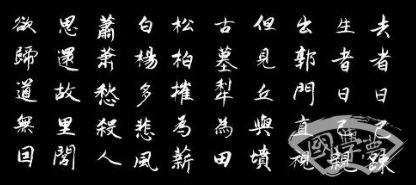 去者日已疎
生者日已親
出郭門直視
但見丘與墳
古墓犁為田
松柏摧為薪
白楊多悲風
蕭蕭愁殺人
思還故里閭
欲歸道無因
國學